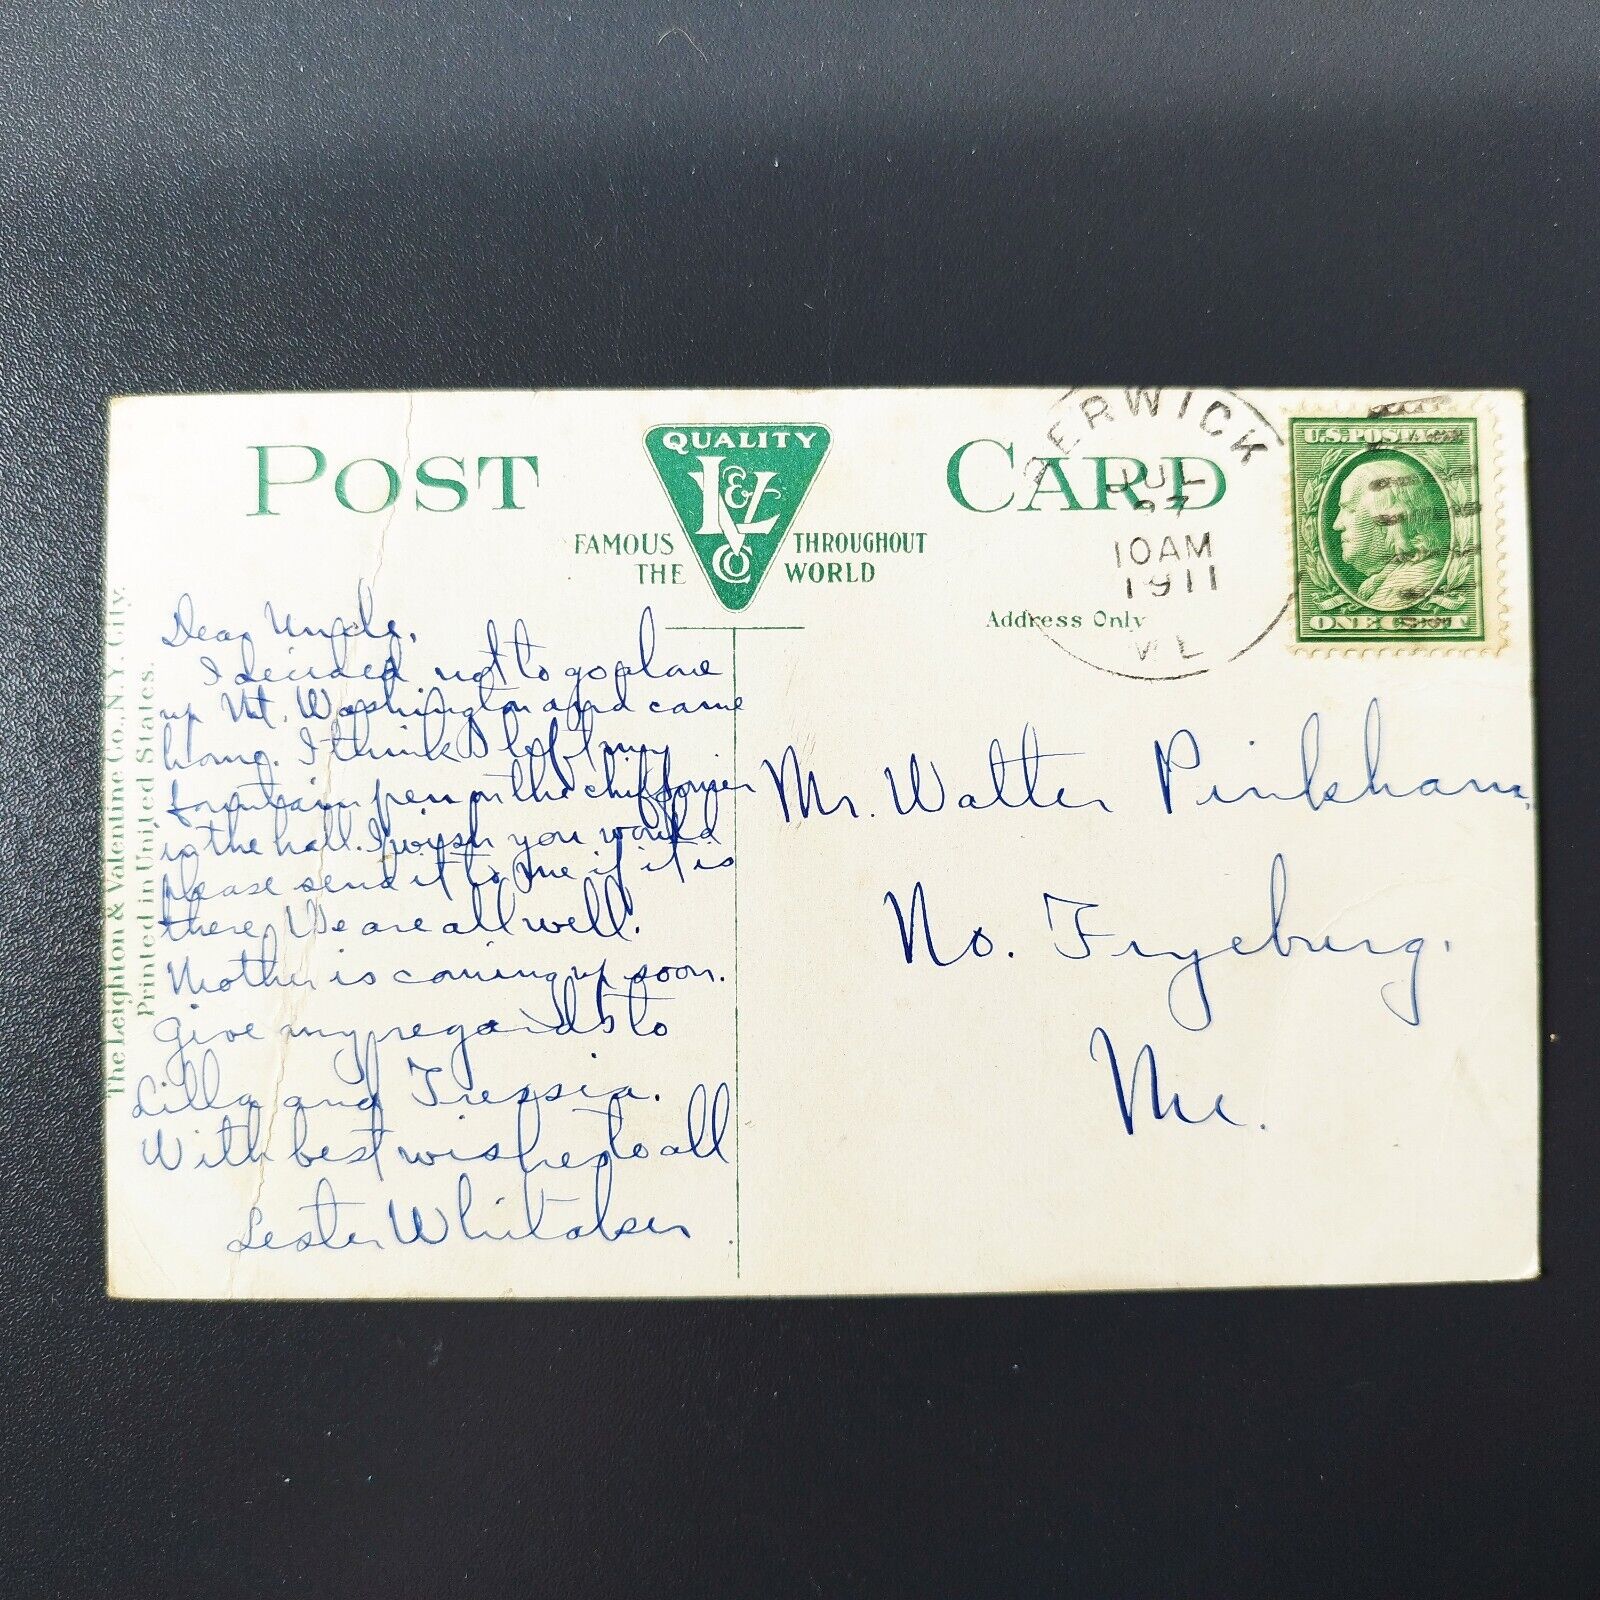 POST CARD
QUALITY
L & V Co
FAMOUS THROUGHOUT
THE WORLD
BERWICK
JUL
27
10AM
1911
U.S. POSTAGE
ONE CENT
Address Only
The Leighton & Valentine Co., N.Y. City.
Printed in United States.
Dear Uncle,
I decided not to go alone
up Mt. Washington and came
home. I think I left my
fountain pen on the chiffonier
in the hall. I wish you would
please send it to me if it is
there. We are all well.
Mother is coming up soon.
Give my regards to
Lilla and Tressia.
With best wishes to all
Lester Whitaker
Mr. Walter Pinkham,
No. Fryeburg,
Me.